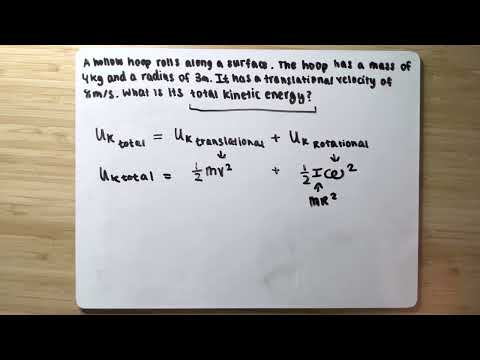 A hollow hoop rolls along a surface. The hoop has a mass of
4kg and a radius of 3m. It has a translational velocity of
8m/s. What is its total kinetic energy?
UK total = UK translational + UK Rotational
↓ ↓
UK total = ½mv² + ½Iω²
↑
MR²